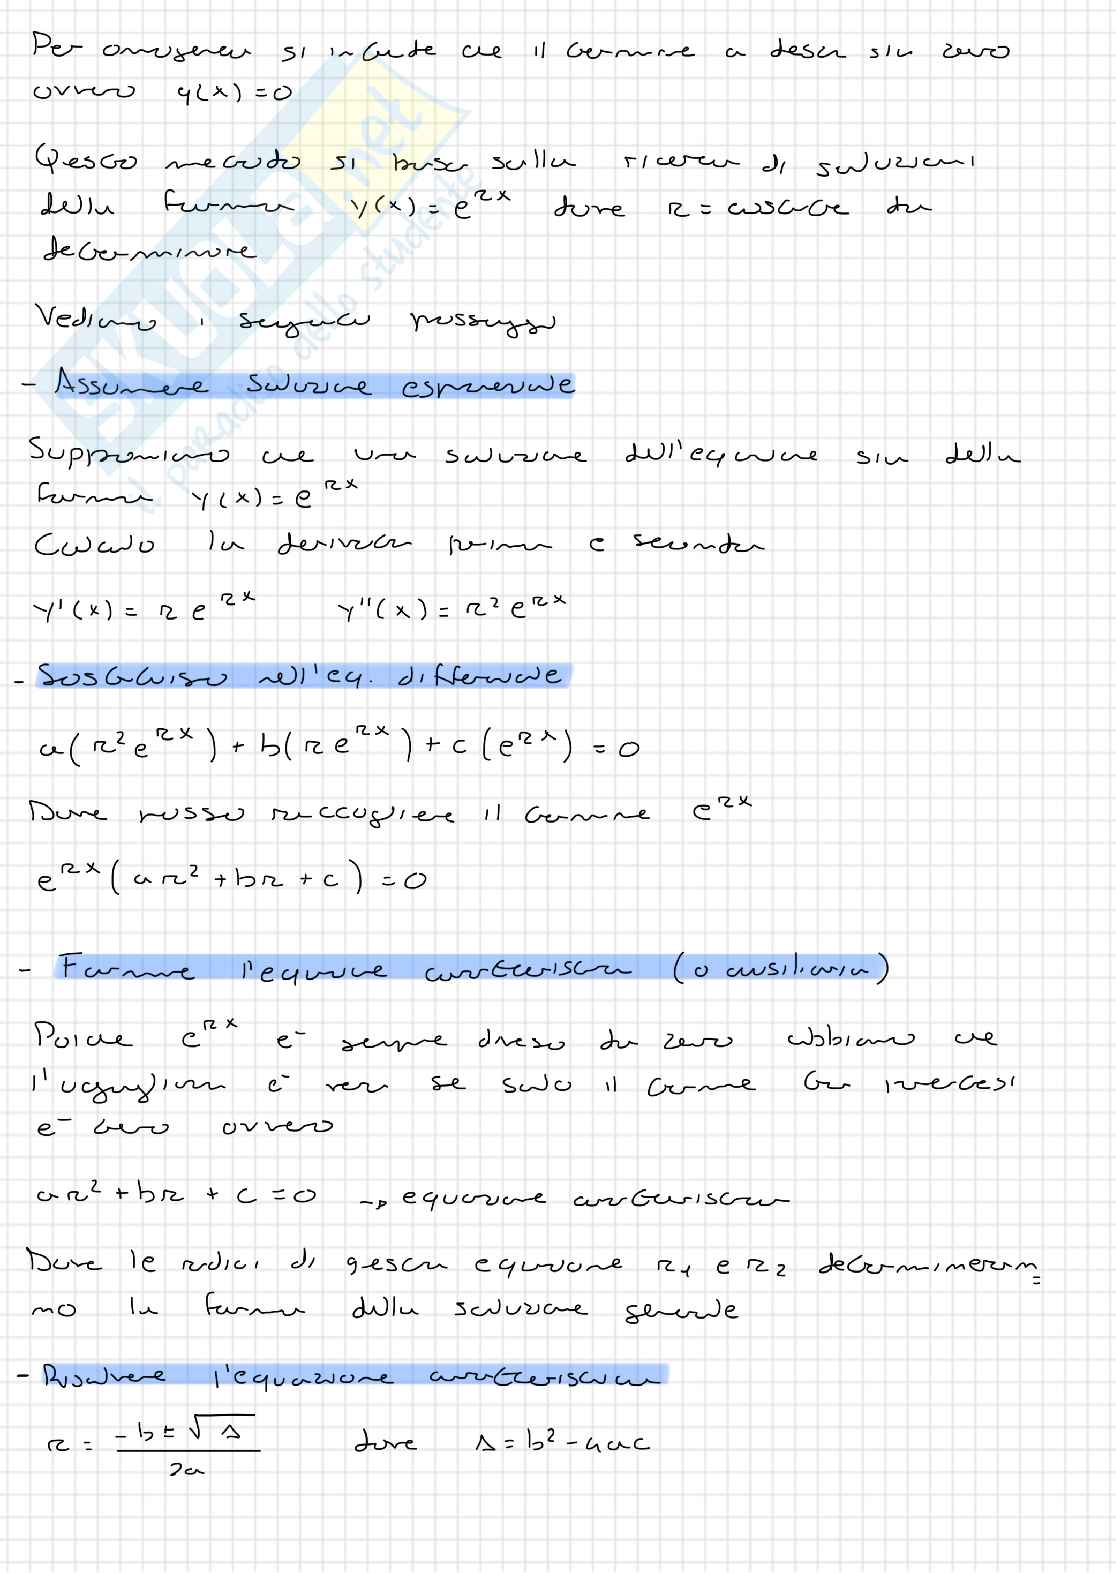 Per omogenea si intende che il termine a destra sia zero
ovvero g(x) = 0
Questo metodo si basa sulla ricerca di soluzioni
della forma y(x) = e^{rx} dove r = costante da
determinare
Vediamo i seguenti passaggi
- Assumere soluzione esponenziale
Supponiamo che una soluzione dell'equazione sia della
forma y(x) = e^{rx}
Calcolo la derivata prima e seconda
y'(x) = r e^{rx} y''(x) = r² e^{rx}
- Sostituisco nell'eq. differenziale
a(r² e^{rx}) + b(r e^{rx}) + c(e^{rx}) = 0
Dove posso raccogliere il termine e^{rx}
e^{rx}(ar² + br + c) = 0
- Formare l'equazione caratteristica (o ausiliaria)
Poiche e^{rx} è sempre diverso da zero abbiamo che
l'uguaglianza è vera se solo il termine tra parentesi
è zero ovvero
ar² + br + c = 0 → equazione caratteristica
Dove le radici di questa equazione r₁ e r₂ determineran=
no la forma della soluzione generale
- Risolvere l'equazione caratteristica
r = (-b ± √Δ) / 2a dove Δ = b² - 4ac
SKUOLA.net
il paradiso dello studente